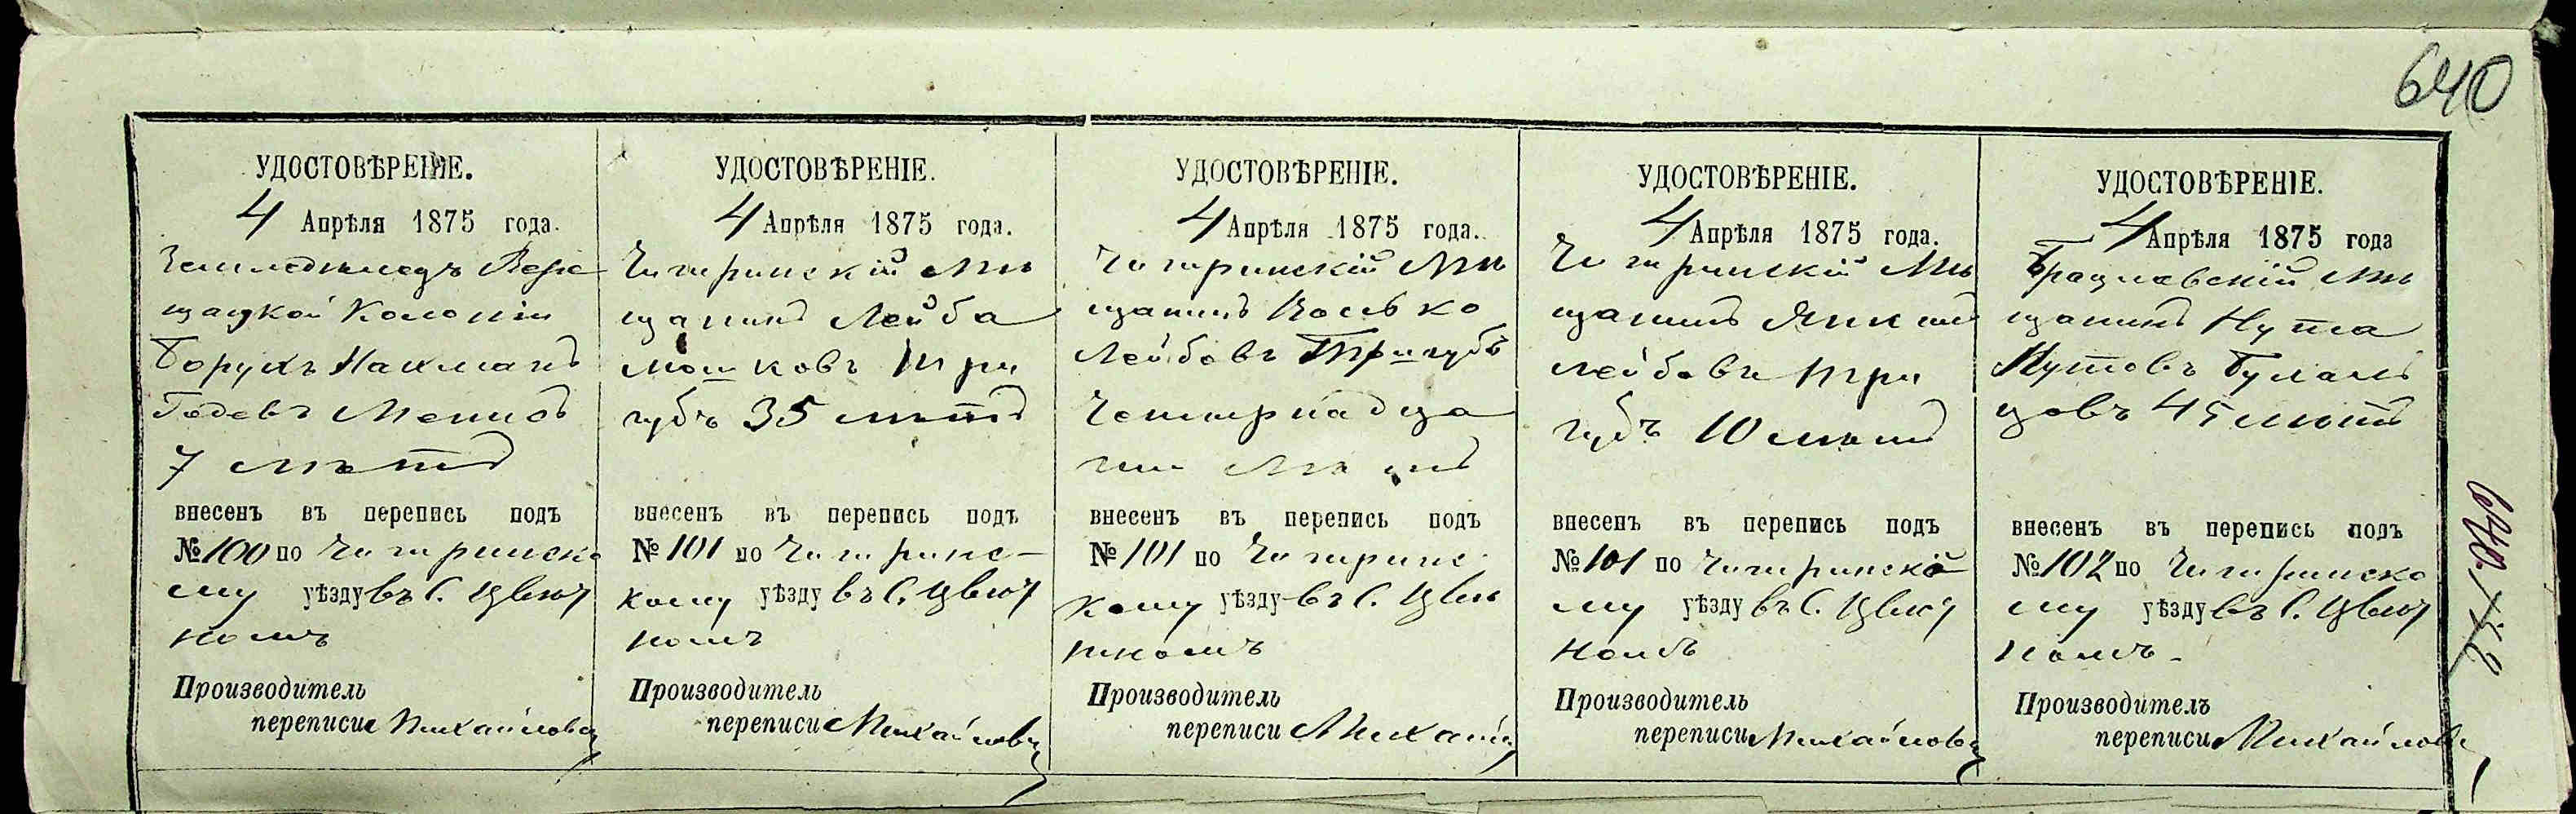 640
УДОСТОВѢРЕНІЕ.
4 Апрѣля 1875 года.
Земледѣледъ Вере
щацкой Колоніи
Борухъ Нахманъ
Менисъ
7 лѣтъ
внесенъ въ перепись подъ
№ 100 по Чигиринско
му уѣзду въ С. Цвѣт
номъ
Производитель
переписи Михайловъ
УДОСТОВѢРЕНІЕ.
4 Апрѣля 1875 года.
Чигиринскій мѣ
щанинъ Лейба
Мошковъ Три
губъ 35 лѣтъ
внесенъ въ перепись подъ
№ 101 по Чигиринс-
кому уѣзду въ С. Цвѣт
номъ
Производитель
переписи Михайловъ
УДОСТОВѢРЕНІЕ.
4 Апрѣля 1875 года.
Чигиринскій Мѣ
щанинъ Іосько
Лейбовъ Тригубъ
Четирнадца
ти лѣтъ
внесенъ въ перепись подъ
№ 101 по Чигиринс
кому уѣзду въ С. Цвѣ
тномъ
Производитель
переписи Михай
УДОСТОВѢРЕНІЕ.
4 Апрѣля 1875 года.
Чигиринскій Мѣ
щанинъ Янкель
Лейбовъ Три
губъ 10 лѣтъ
внесенъ въ перепись подъ
№ 101 по Чигиринско
му уѣзду въ С. Цвѣт
номъ
Производитель
переписи Михайловъ
УДОСТОВѢРЕНІЕ.
4 Апрѣля 1875 года
Брацлавскій мѣ
щанинъ Нута
Нутовъ
45 лѣтъ
внесенъ въ перепись подъ
№ 102 по Чигиринско
му уѣзду въ С. Цвѣт
номъ.
Производитель
переписи Михайлов
640.